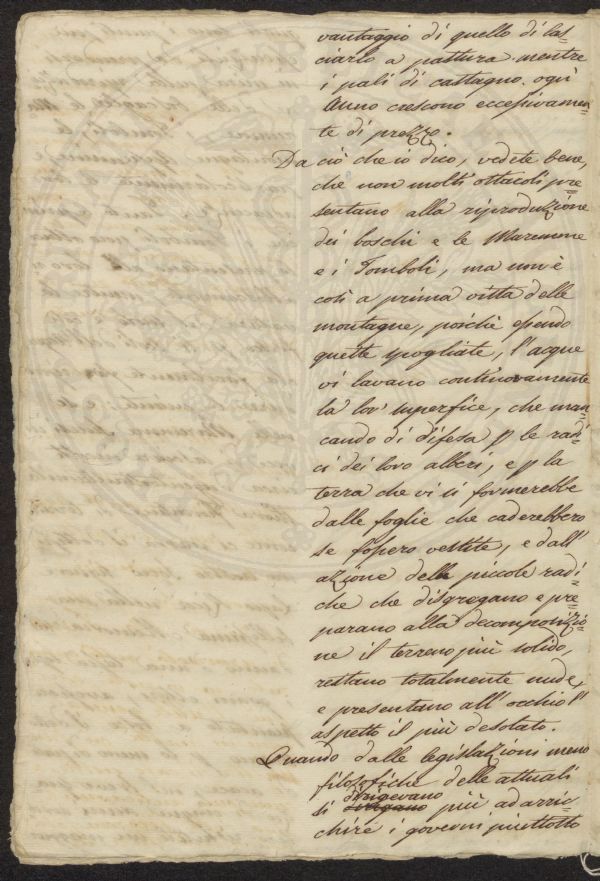 vantaggio di quello di las=
ciarlo a pastura. mentre
i pali di castagno. ogni
Anno crescono eccessivamen=
te di prezzo.
Da ciò che io dico, vedete bene,
che non molti ostacoli pre=
sentano alla riproduzione
dei boschi e le Maremme
e i Tomboli, ma non è
così a prima vista delle
montagne, poichè essendo
queste spogliate, l'acque
vi lavano continovamente
la lor' superfice, che man=
cando di difesa p le radi=
ci dei loro alberi, e p la
terra che vi si formerebbe
dalle foglie che caderebbero
se fossero vestite, e dall'
azione delle piccole radi=
che che disgregano e pre=
parano alla decomposizio=
ne il terreno più solido,
restano totalmente nude,
e presentano all'occhio l'
aspetto il più desolato.
Quando dalle legislazioni meno
filosofiche delle attuali
dirigevano
si più ad arric=
chire i governi piuttosto